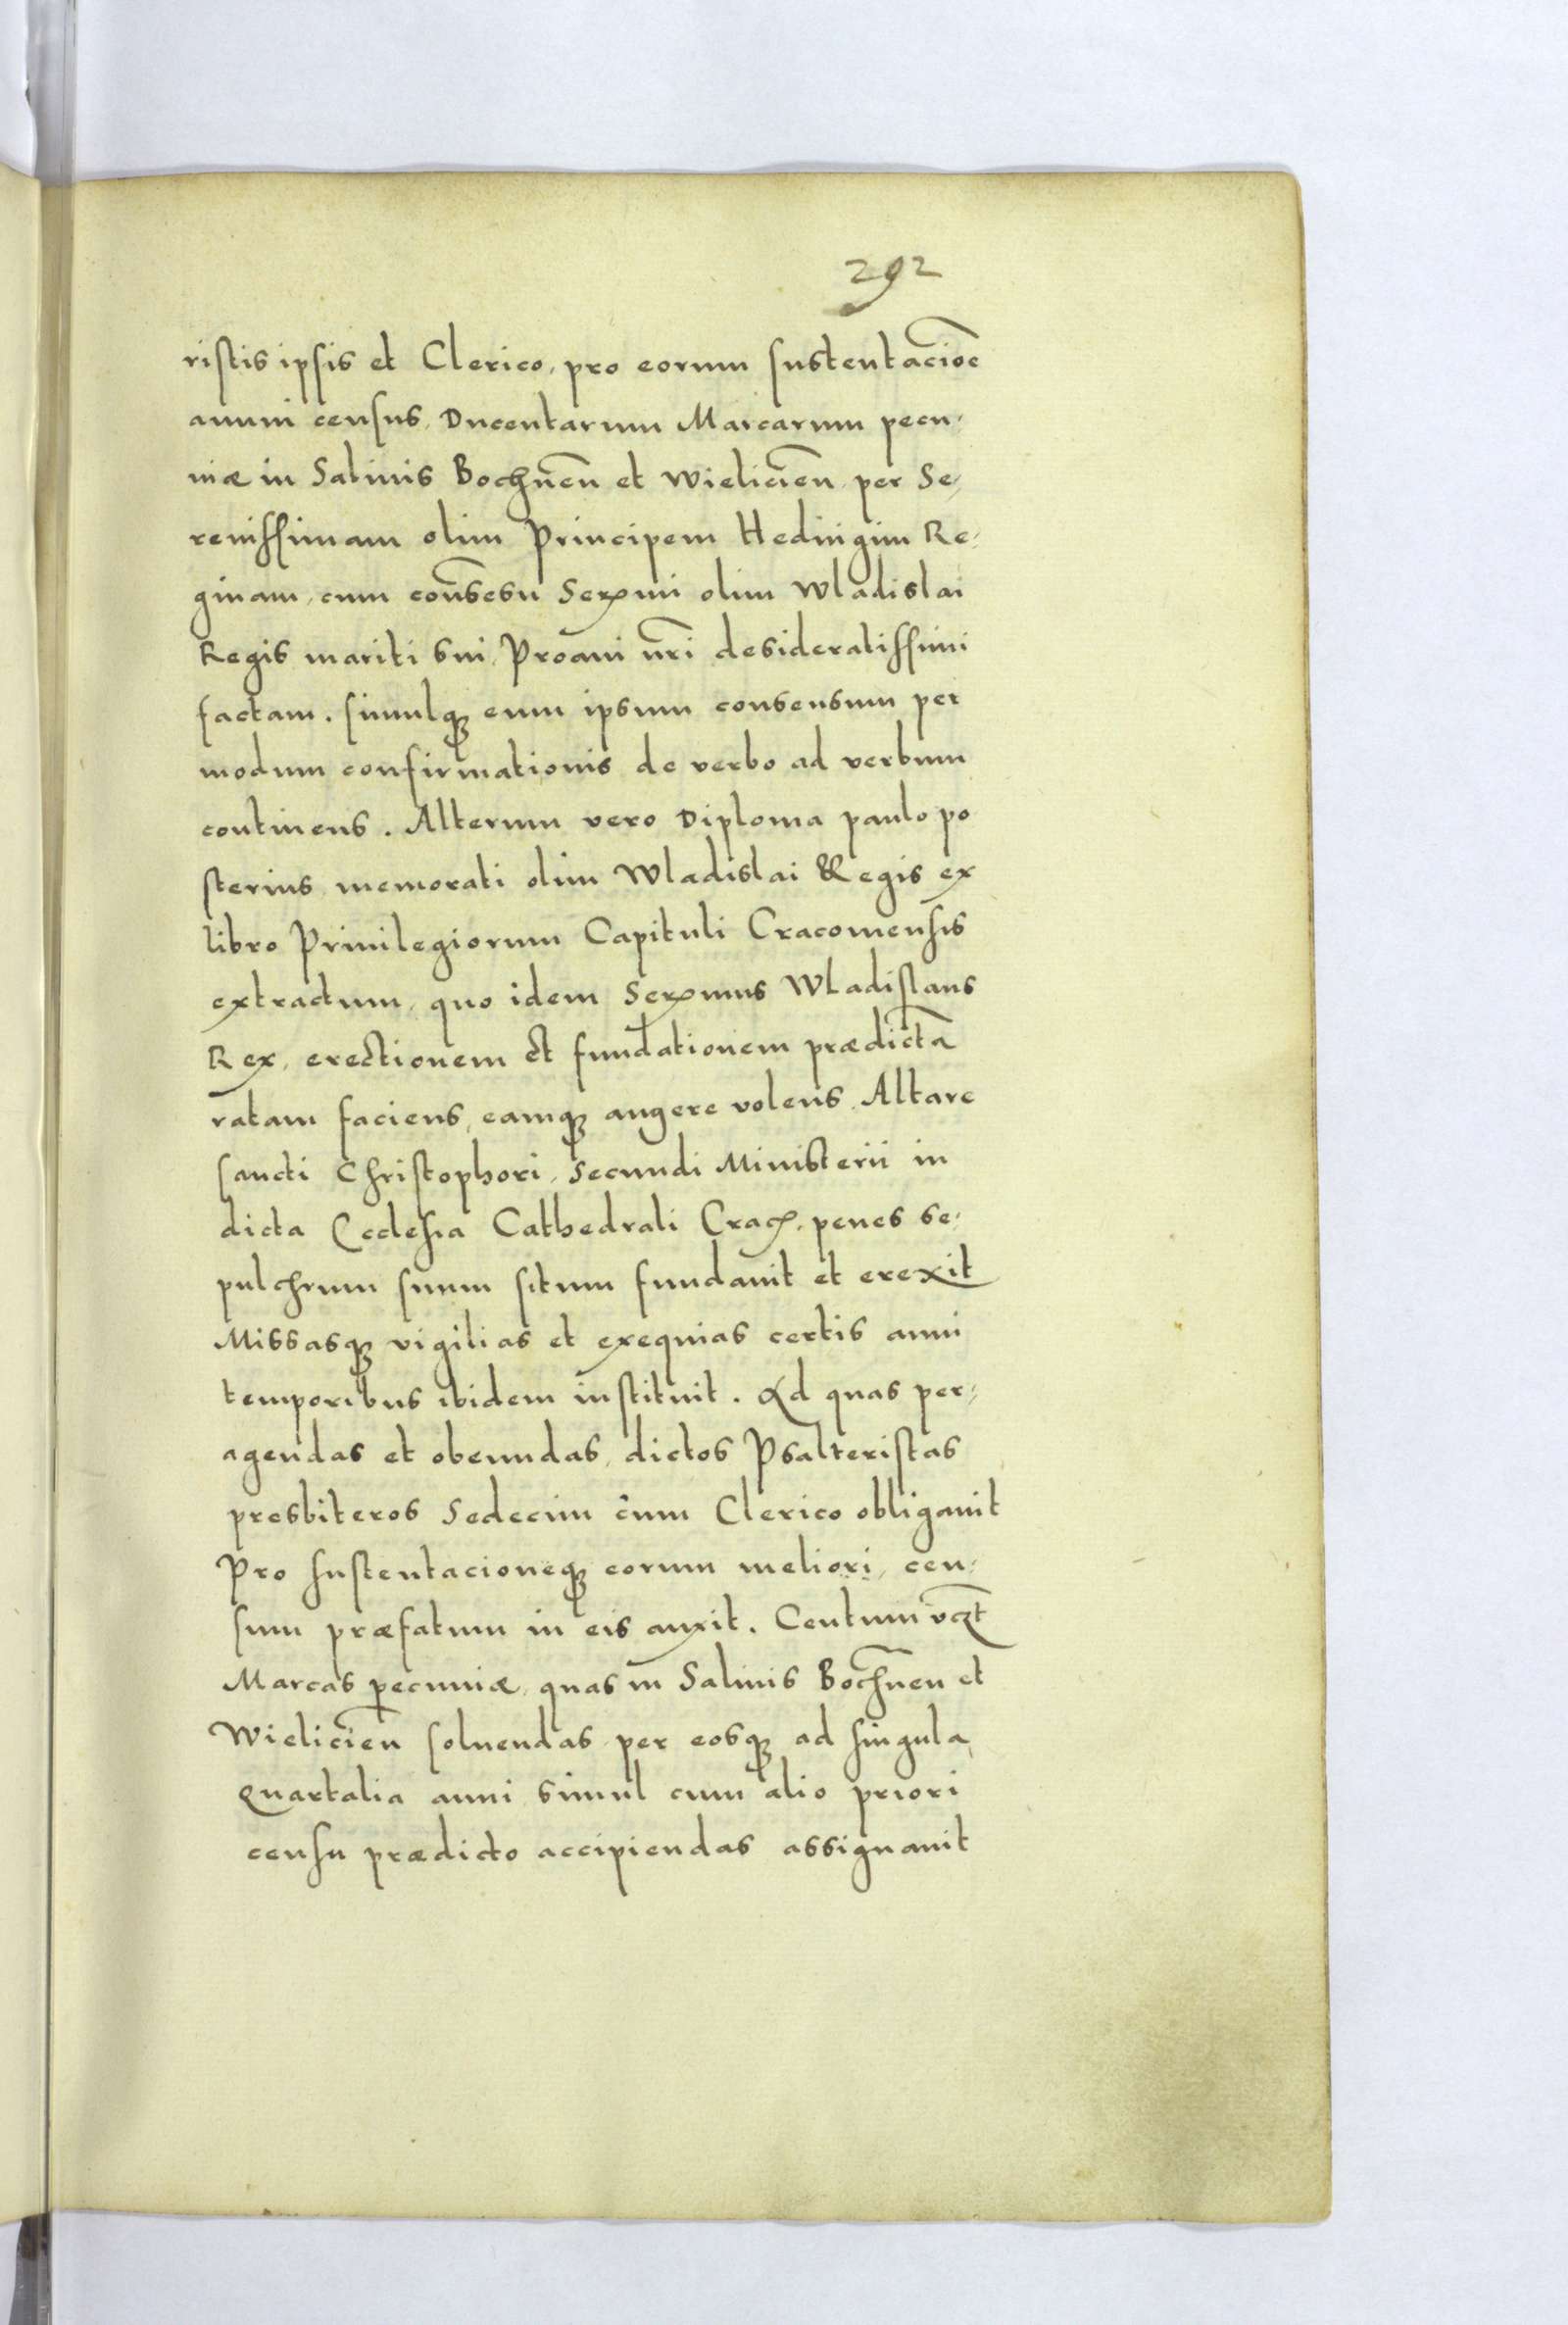 292
ristis ipsis et Clerico, pro eorum sustentacioē
annui census, Ducentarum Marcarum pecu-
niæ in Salinis Bochneñ et Wielicień per Se-
renissimam olim Principem Hedvigim Re-
ginam, cum cons̄esu Serʳmi olim Wladislai
Regis mariti sui, Proavi nr̄i desideratissimi
factam. simulqꝫ eum ipsum consensum per
modum confirmationis de verbo ad verbum
continens. Alterum vero Diploma paulo po
sterius memorati olim Wladislai Regis ex
libro Privilegiorum Capituli Cracoviensis
extractum, quo idem Serʳmus Wladislaus
Rex, erectionem et fundationem prædictā
ratam faciens, eamqꝫ augere volens, Altare
sancti Christophori, Secundi Ministerii in
dicta Ecclesia Cathedrali Crac̄. penes se-
pulchrum suum situm fundavit et erexit
Missasqꝫ vigilias et exequias certis anni
temporibus ibidem instituit. Ad quas per-
agendas et obeundas, dictos Psalteristas
presbiteros Sedecim cum Clerico obligavit
Pro sustentacioneqꝫ eorum meliori, cen-
sum præfatum in eis auxit. Centum vꝫt
Marcas pecuniæ, quas in Salinis Bochneñ et
Wielicień solvendas per eosqꝫ ad singula
Quartalia anni simul cum alio priori
censu prædicto accipiendas assignavit